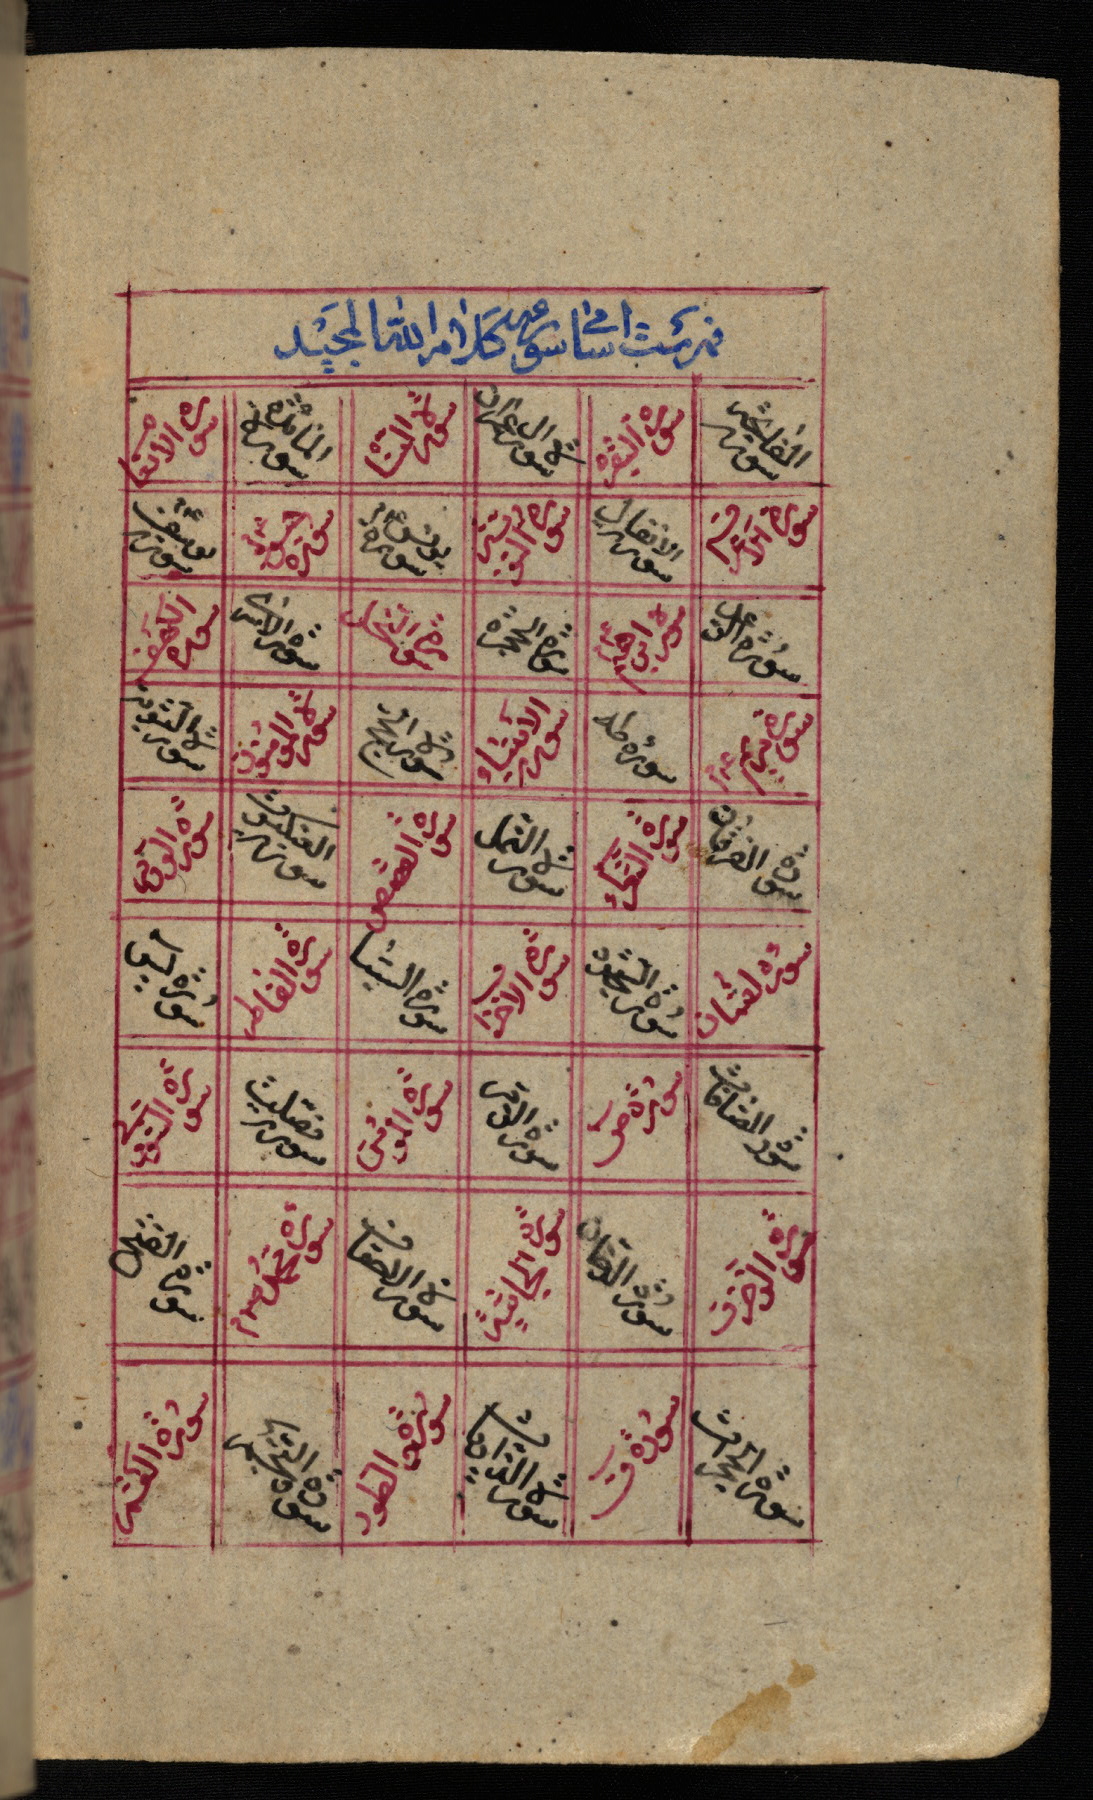 فهرست اسامي سورهاى كلام الله المجيد
سورة الفاتحة سورة البقرة سورة ال عمران سورة النسا سورة المائدة سورة الانعام
سورة الاعراف سورة الانفال سورة التوبة سورة يونس سورة هود سورة يوسف
سورة الرعد سورة ابراهيم سورة الحجرة سورة النحل سورة الاسرى سورة الكهف
سورة مريم سورة طه سورة الانبياء سورة الحج سورة المومنون سورة النور
سورة الفرقان سورة الشعراء سورة النمل سورة القصص سورة العنكبوت سورة الروم
سورة لقمان سورة السجدة سورة الاحزاب سورة السبا سورة الفاطر سورة يس
سورة الصافات سورة ص سورة الزمر سورة المومن سورة فصلت سورة الشورى
سورة الزخرف سورة الدخان سورة الجاثية سورة الاحقاف سورة محمد سورة الفتح
سورة الحجرات سورة ق سورة الذاريات سورة الطور سورة النجم سورة القمر